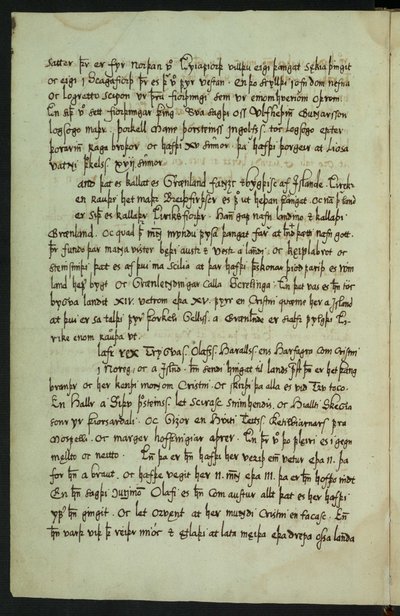 sætter þr er fyr norþan vǫ Eyiafiorþ villdu eigi þangat sękia þingit
oc eigi i Scagafiorþ þr es þr vǫ fyr vestan. En þo scylldi iofn dom nefna
oc logretto scipon ýr þra fiorþungi sem ýr enom hveriom oþrom.
En siþ vǫ sett fiorþungar þing. Sva sagþi oss Ulfheþinn Gunnarsson
logsogo maþr. þorkell Mane þorsteinss Ingolfss. toc logsogo epter
þorarinn Raga broþor oc hafþi XV sumor. þa hafþi þorgeir at Liosa
vatni þkelss. XVII sumor.
Land þat es kallat es Grœnland fannsc oc bygþisc af Islande. Eirekr
en rauþe het maþr Breiþfirþscr es fór út heþan þangat. oc nā þ land
er siþ es kallaþr Eiriksfiorþr. Hann gaf nafn landino. & kallaþi
Grœnland. Oc quaþ mēn myndu fysa þangat farar at landet ętti nafn gott.
þr fundo þar manna vister bęþi austr & vestr a landi. oc keiplabrot oc
steinsmiþi þat es af þvi ma scilia at þar hafþi þesskonar þioð fariþ es Vin
land hefr bygt oc Grœnlendingar calla Screlinga. En þat vas es hann tóc
byGva landit XIV. vetrom eþa XV. fyrr en Cristni quæme her a Island
at þvi er sa talþi fyr þorkeli Gelliss. a Grœnlande er sialfr fylgþi Ei
rike enom rauþa út.
Olafr REX Tryggvas. Olafss. Haralls ens Harfagra com Cristni
i Noreg. oc a Island. Hann sendi hingat til lands prest þn er het þang
brandr oc her kendi monnom Cristni. oc skirþi þa alla es viþ Tru toco.
En Hallr a Siþo þsteinss. let scirasc snimhendis. oc Hiallti Skeggia
sonr ýr þiorsardali. oc Gizor en Hviti Teitss. Ketilbiarnars. fra
Mosfelli. oc marger hofþingiar aþrer. En þr vǫ þo fleiri es i gegn
męllto oc neitto. En þa er hann hafþi her verit einn vetr eþa II. þa
fór hann a braut. oc hafþe vegit her II. menn eþa III. þa er hann hofþo nidt
En hann sagþi konunginom Olafi es hann com austur allt þat es her hafþi
yfir hann gingit. oc let ørvent at her mundi Cristni en tacasc. En
hann varþ viþ þat reiþr mioc & ętlaþi at lata meiþa eþa drepa ossa landa